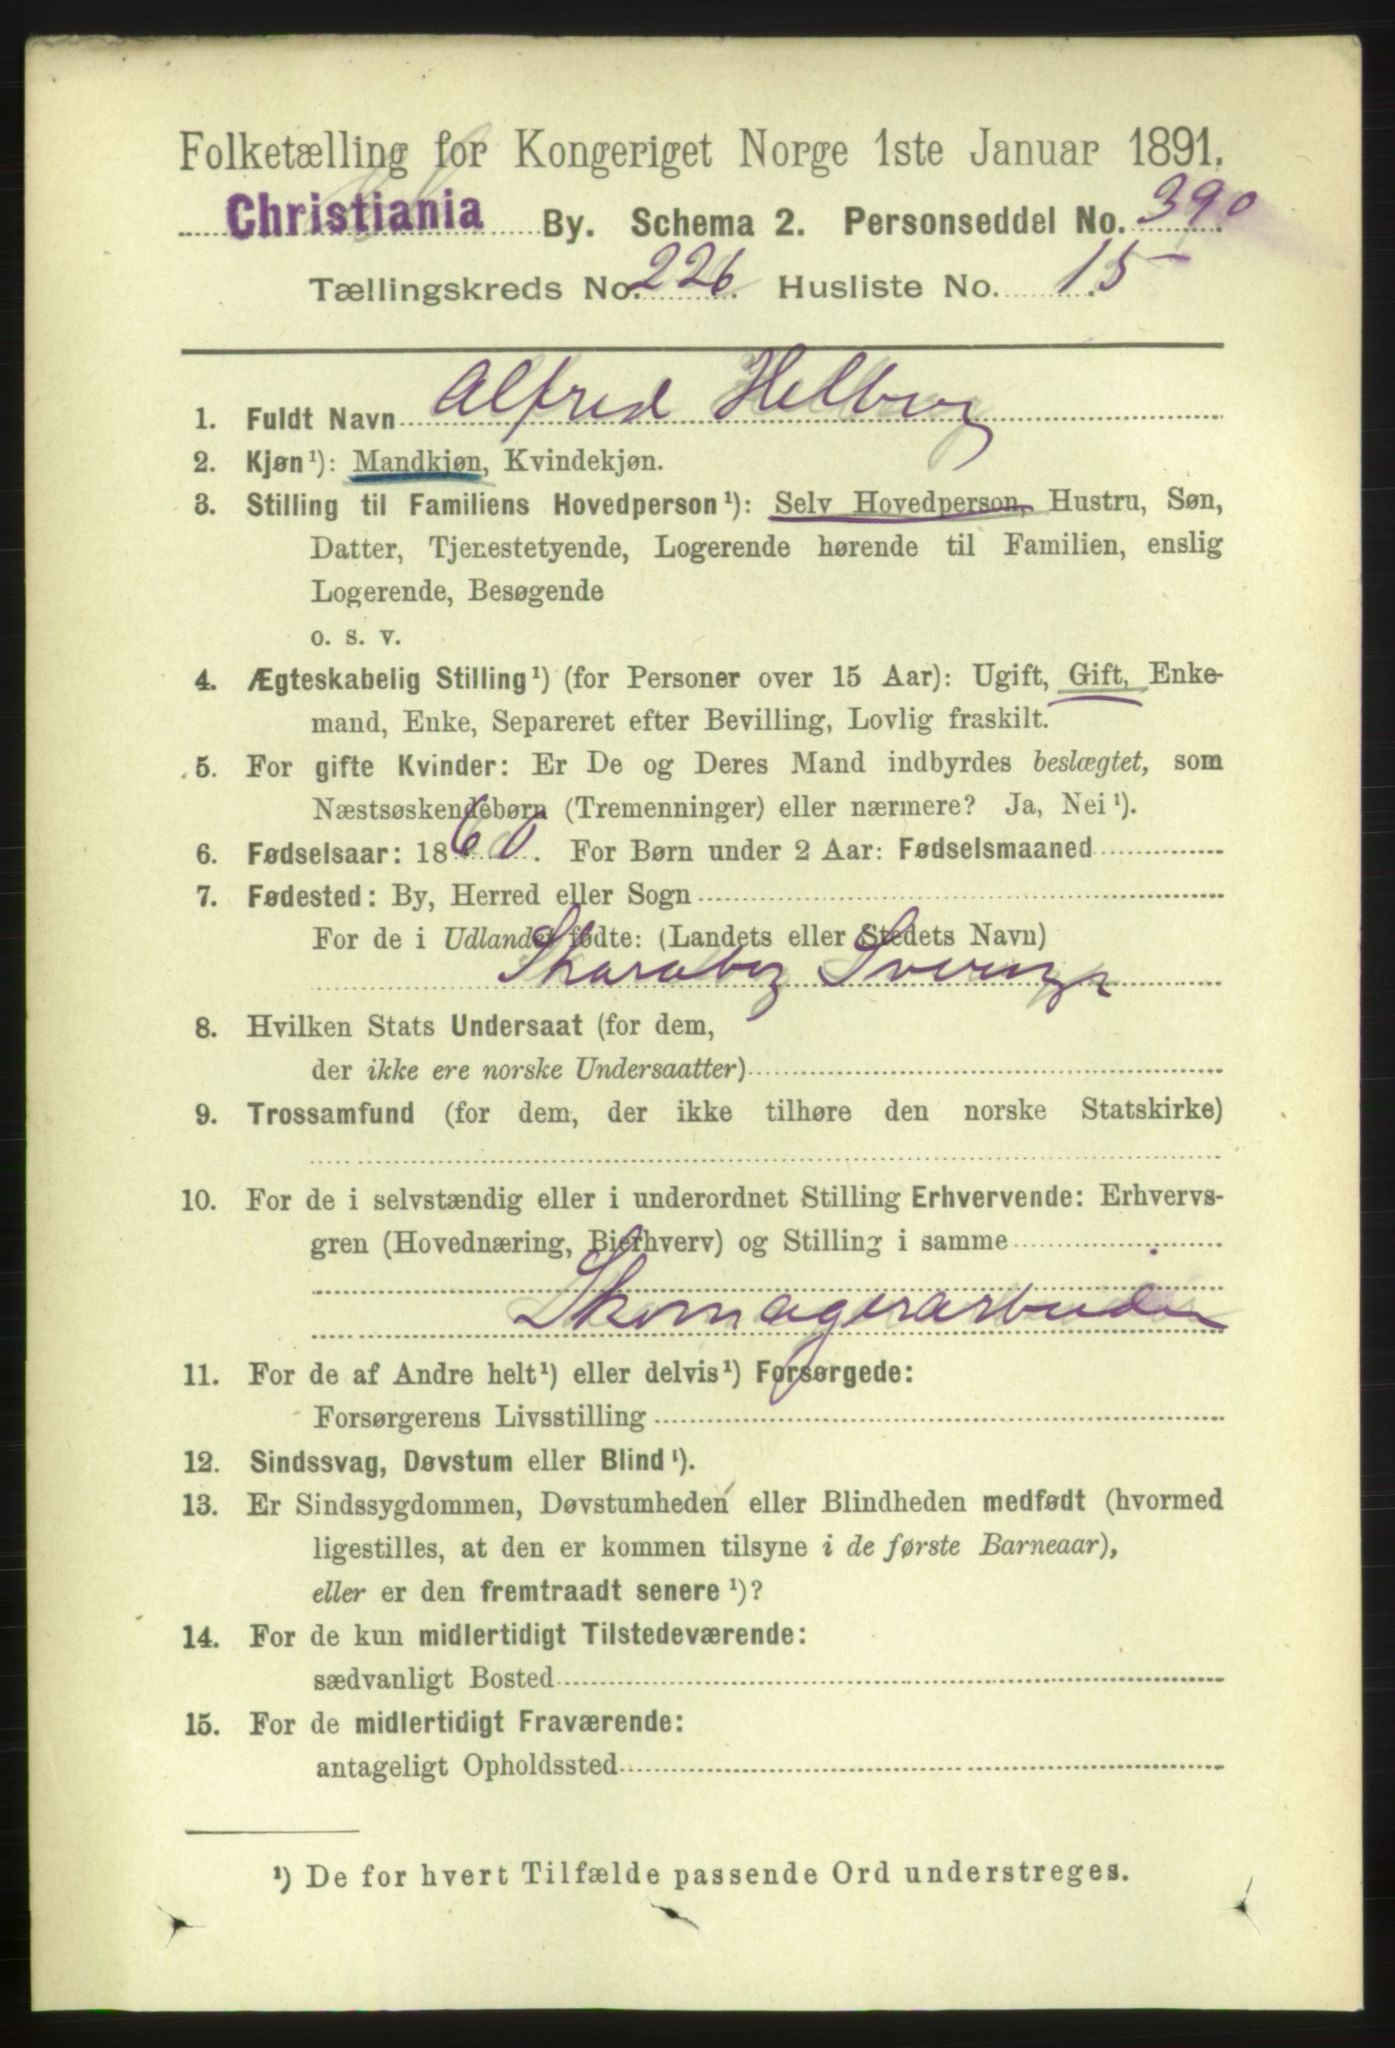 Folketælling for Kongeriget Norge 1ste Januar 1891.
Christiania By. Schema 2. Personseddel No. 390.
Tællingskreds No. 226. Husliste No. 15.
1. Fuldt Navn Alfred Helberg
2. Kjøn¹): Mandkjøn, Kvindekjøn.
3. Stilling til Familiens Hovedperson¹): Selv Hovedperson, Hustru, Søn,
Datter, Tjenestetyende, Logerende hørende til Familien, enslig
Logerende, Besøgende
o. s. v.
4. Ægteskabelig Stilling¹) (for Personer over 15 Aar): Ugift, Gift, Enke-
mand, Enke, Separeret efter Bevilling, Lovlig fraskilt.
5. For gifte Kvinder: Er De og Deres Mand indbyrdes beslægtet, som
Næstsøskendebørn (Tremenninger) eller nærmere? Ja, Nei¹).
6. Fødselsaar: 1860. For Børn under 2 Aar: Fødselsmaaned
7. Fødested: By, Herred eller Sogn
For de i Udlandet fødte: (Landets eller Stedets Navn)
Skaraborg Sverige
8. Hvilken Stats Undersaat (for dem,
der ikke ere norske Undersaatter)
9. Trossamfund (for dem, der ikke tilhøre den norske Statskirke)
10. For de i selvstændig eller i underordnet Stilling Erhvervende: Erhvervs-
gren (Hovednæring, Bierhverv) og Stilling i samme
Skomagerarbeider
11. For de af Andre helt¹) eller delvis¹) Forsørgede:
Forsørgerens Livsstilling
12. Sindssvag, Døvstum eller Blind¹).
13. Er Sindssygdommen, Døvstumheden eller Blindheden medfødt (hvormed
ligestilles, at den er kommen tilsyne i de første Barneaar),
eller er den fremtraadt senere¹)?
14. For de kun midlertidigt Tilstedeværende:
sædvanligt Bosted
15. For de midlertidigt Fraværende:
antageligt Opholdssted
¹) De for hvert Tilfælde passende Ord understreges.